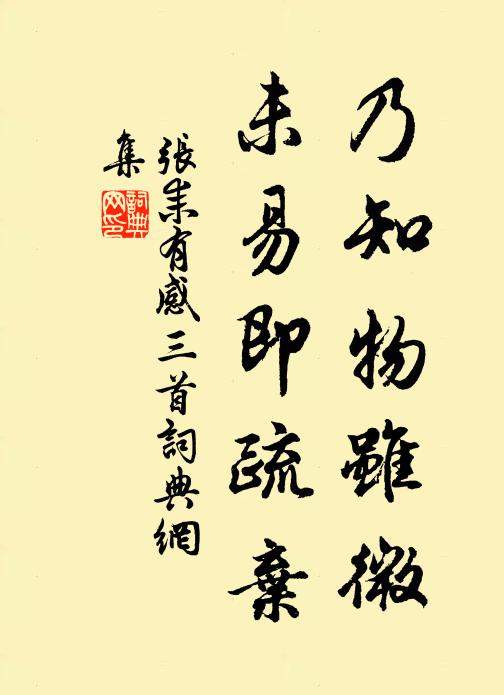 乃知物雖微
未易即疏棄
張耒有感三首詞典網
集
詞典
网印